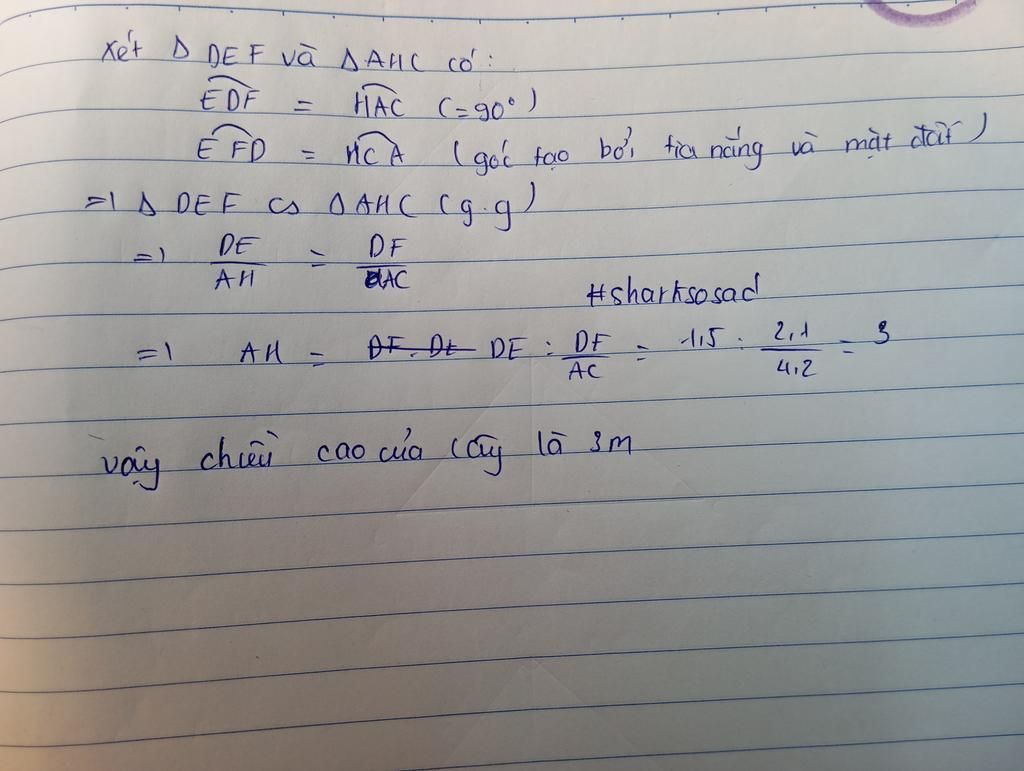 Xét Δ DEF và Δ AHC có:
EDF = HAC (=90°)
EFD = HCA (góc tạo bởi tia nắng và mặt đất)
=> Δ DEF ∽ Δ AHC (g.g)
=> DE/AH = DF/AC
#sharksosad
=> AH = DE : DF/AC = 1,5 : 2,1/4,2 = 3
vậy chiều cao của cây là 3m